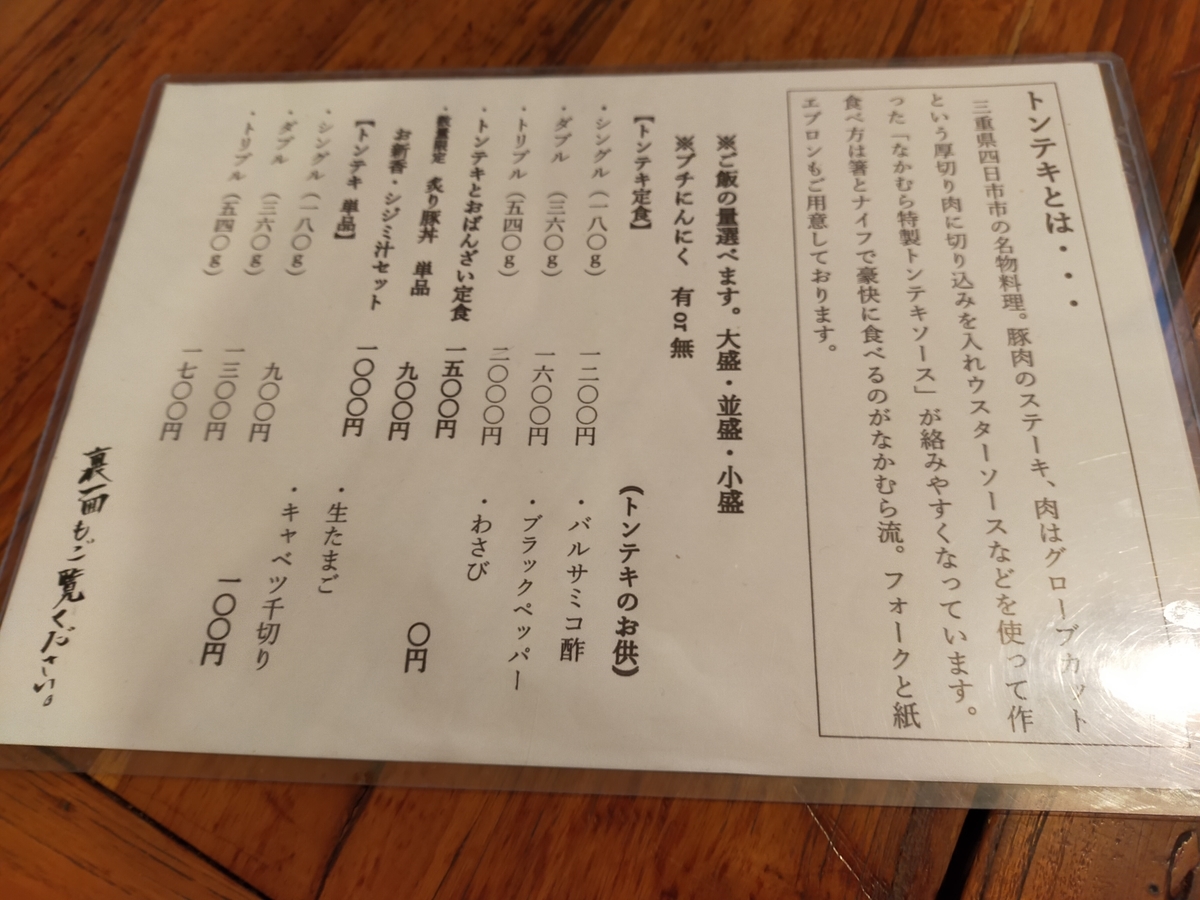 トンテキとは・・・
三重県四日市市の名物料理。豚肉のステーキ、肉はグローブカット
という厚切り肉に切り込みを入れウスターソースなどを使って作
った「なかむら特製トンテキソース」が絡みやすくなっています。
食べ方は箸とナイフで豪快に食べるのがなかむら流。フォークと紙
エプロンもご用意しております。
※ご飯の量選べます。大盛・並盛・小盛
※プチにんにく 有or無
【トンテキ定食】
・シングル（一八〇g） 一二〇〇円
・ダブル（三六〇g） 一六〇〇円
・トリプル（五四〇g） 二〇〇〇円
・トンテキとおばんざい定食 一五〇〇円
・数量限定 炙り豚丼 単品 九〇〇円
お新香・シジミ汁セット 一〇〇〇円
【トンテキ 単品】
・シングル（一八〇g） 九〇〇円
・ダブル（三六〇g） 一三〇〇円
・トリプル（五四〇g） 一七〇〇円
（トンテキのお供）
・バルサミコ酢
・ブラックペッパー
・わさび
〇円
・生たまご
・キャベツ千切り
一〇〇円
裏面もご覧ください。